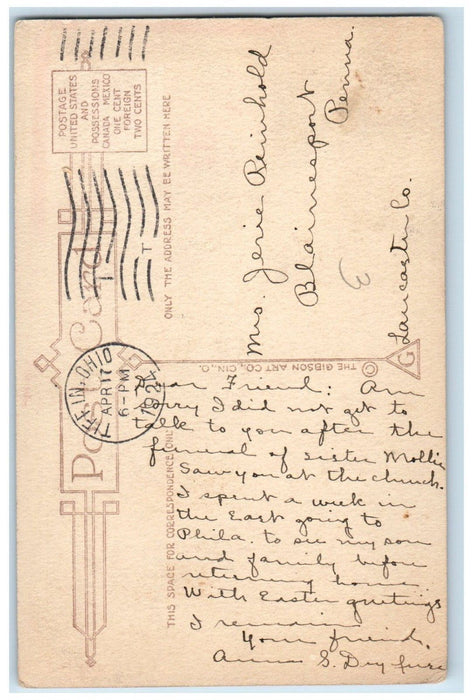 Post Card
POSTAGE
UNITED STATES
AND
POSSESSIONS
CANADA MEXICO
ONE CENT
FOREIGN
TWO CENTS
TIFFIN, OHIO
APR 17
6-PM
1924
ONLY THE ADDRESS MAY BE WRITTEN HERE
Mrs. Jerie Reinhold
Blainesport
Penna.
Lancaster Co.
THE GIBSON ART CO., CIN., O.
©
G
THIS SPACE FOR CORRESPONDENCE ONLY
Dear Friend: Am
sorry I did not get to
talk to you after the
funeral of sister Mollie
Saw you at the church.
I spent a week in
the East going to
Phila. to see my son
and family before
returning home
With Easter greetings
I remain
Your friend,
Anna S.